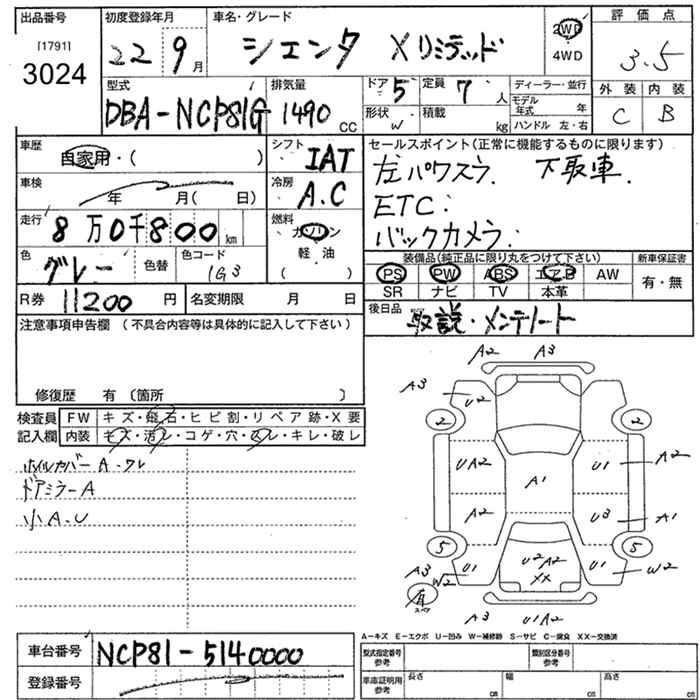 出品番号 初度登録年月 車名・グレード 評価点
[1791]
3024
22 9月 シエンタ Xリミテッド 2WD 4WD 3.5
外装 内装
C B
型式 排気量 ドア 5 定員 7人 ディーラー・並行
DBA-NCP81G 1490cc 形状 W 積載 kg モデル年式 年
ハンドル 左・右
車歴 自家用・( ) シフト IAT
セールスポイント(正常に機能するものに限ります)
左パワスラ. 下取車.
ETC.
バックカメラ.
車検 年 月( 日) 冷房 A.C
走行 8万0千800km 燃料 ガソリン
軽油
( )
色 グレー 色替 色コード 1G3
装備品(純正品に限り丸をつけて下さい) 新車保証書
PS PW ABS エアB AW 有・無
SR ナビ TV 本革
R券 11200円 名変期限 月 日
後日品 取説・メンテノート
注意事項申告欄 (不具合内容等は具体的に記入して下さい)
修復歴 有 〔箇所 〕
検査員 FW キズ・飛石・ヒビ割・リペア跡・X要
記入欄 内装 キズ・汚レ・コゲ・穴・スレ・キレ・破レ
ホイルカバーA・ワレ
ドアミラーA
小A.U
A2 A3
A3 U2
2 2
UA2 A1 U1 A2
A2 U3 A1
5 5
A3 W2 U1 U2 A2 XX U1 W2
有 スペア
A3 U1A2
A-キズ E-エクボ U-凹み W-補修跡 S-サビ C-腐食 XX-交換済
車台番号 NCP81-5140000
登録番号
型式指定番号 参考 類別区分番号 参考
車庫証明用 参考 長さ cm 幅 cm 高さ cm